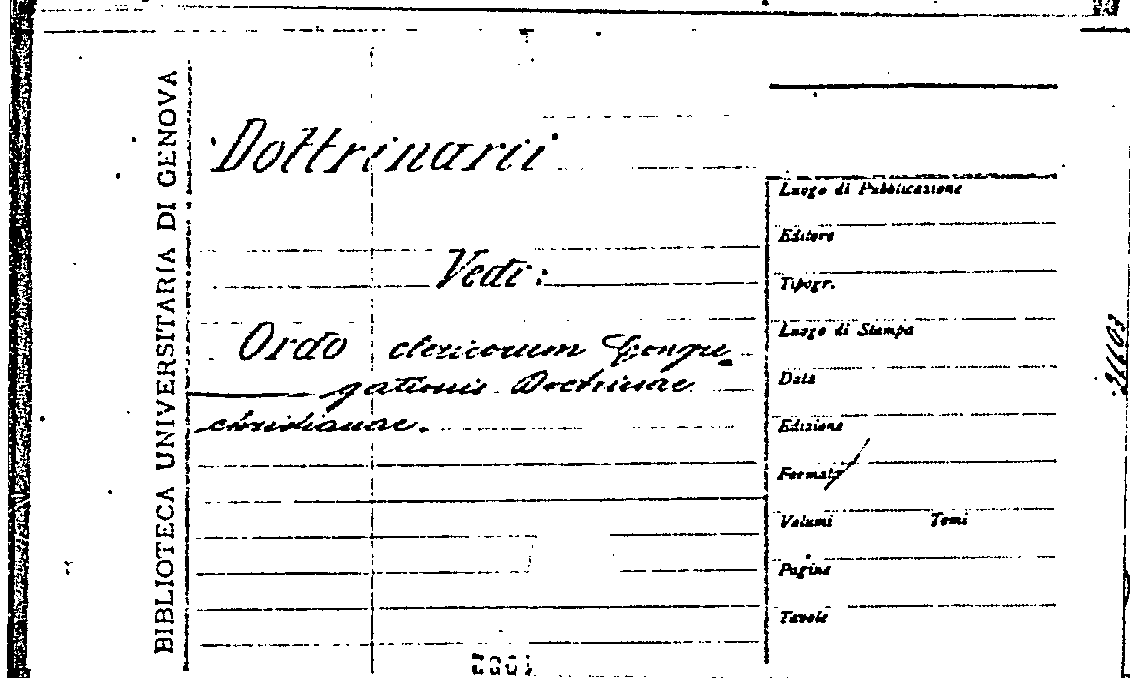 BIBLIOTECA UNIVERSITARIA DI GENOVA
Dottrinarii
Vedi:
Ordo clericorum Congre-
gationis Doctrinae
christianae.
Luogo di Pubblicazione
Editore
Tipogr.
Luogo di Stampa
Data
Edizione
Formato
Volumi Tomi
Pagine
Tavole